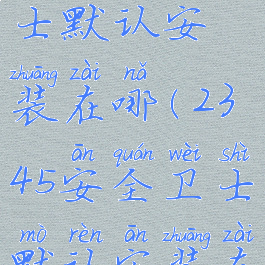 士默认安
zhuāng zài nǎ
装在哪(23
ān quán wèi shì
45安全卫士
mò rèn ān zhuāng zài
默认安装在